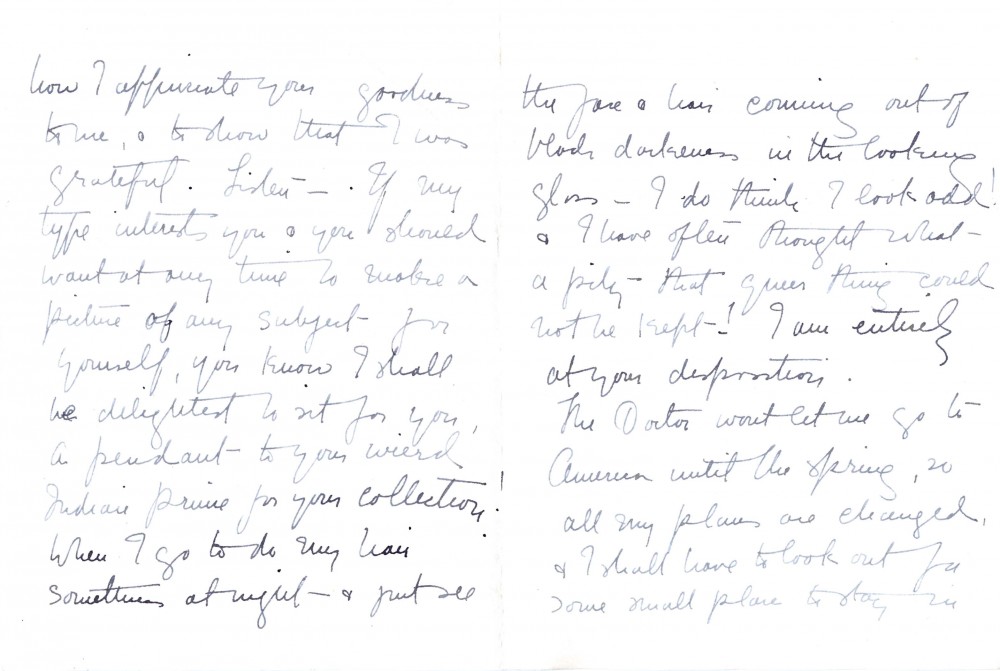 how I appreciate your goodness
to me, & to show that I was
grateful. Listen – . If my
type interests you & you should
want at any time to make a
picture of any subject for
yourself, you know I shall
be delighted to sit for you,
a pendant to your wierd
Indian Prince for your collection!
When I go to do my hair
sometimes at night – & just see
the face & hair coming out of
black darkness in the looking
glass – I do think I look odd!
& I have often thought what
a pity that queer thing could
not be kept–! I am entirely
at your disposition.
The Doctor wont let me go to
America until the spring, so
all my plans are changed,
& I shall have to look out for
some small place to stay in